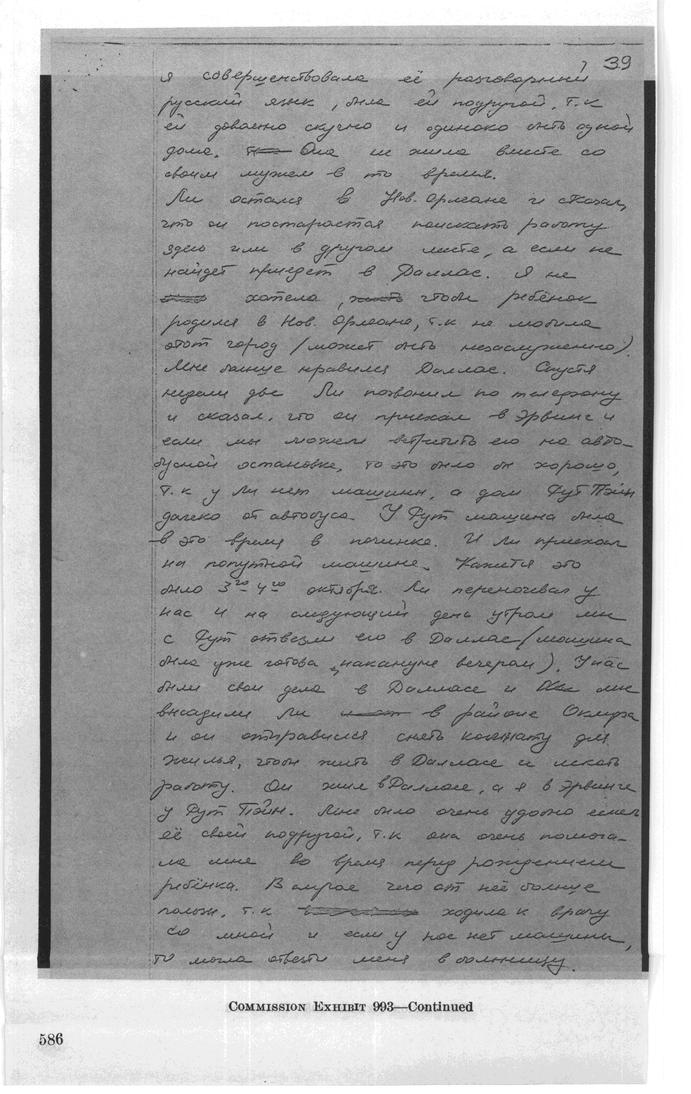 39
я совершенствовала её разговорный
русский язык, была ей подругой, т.к
ей довольно скучно и одиноко быть одной
дома. Она не жила вместе со
своим мужем в то время.
Ли остался в Нов. Орлеане и сказал,
что он постарается поискать работу
здесь или в другом месте, а если не
найдет приедет в Даллас. Я не
хотела, чтобы ребёнок
родился в Нов. Орлеане, т.к не любила
этот город (может быть незаслуженно).
Мне больше нравился Даллас. Спустя
недели две Ли позвонил по телефону
и сказал, что он приехал в Эрвинг и
если мы можем встретить его на авто-
бусной остановке, то это было бы хорошо,
т.к у Ли нет машины, а дом Рут Пэйн
далеко от автобуса. У Рут машина была
в это время в починке. И Ли приехал
на попутной машине. Кажется это
было 3го 4го октября. Ли переночевал у
нас и на следующий день утром мы
с Рут отвезли его в Даллас (машина
была уже готова накануне вечером). У нас
были свои дела в Далласе и мы
высадили Ли в районе Окклифа
и он отправился снять комнату для
жилья, чтобы жить в Далласе и искать
работу. Он жил в Далласе, а я в Эрвинге
у Рут Пэйн. Мне было очень удобно
её своей подругой, т.к она очень помога-
ла мне во время перед рождением
ребёнка. В чего от неё больше
т.к ходила к врачу
со мной и если у нас нет машины,
то могла отвезти меня в больницу.
COMMISSION EXHIBIT 993—Continued
586